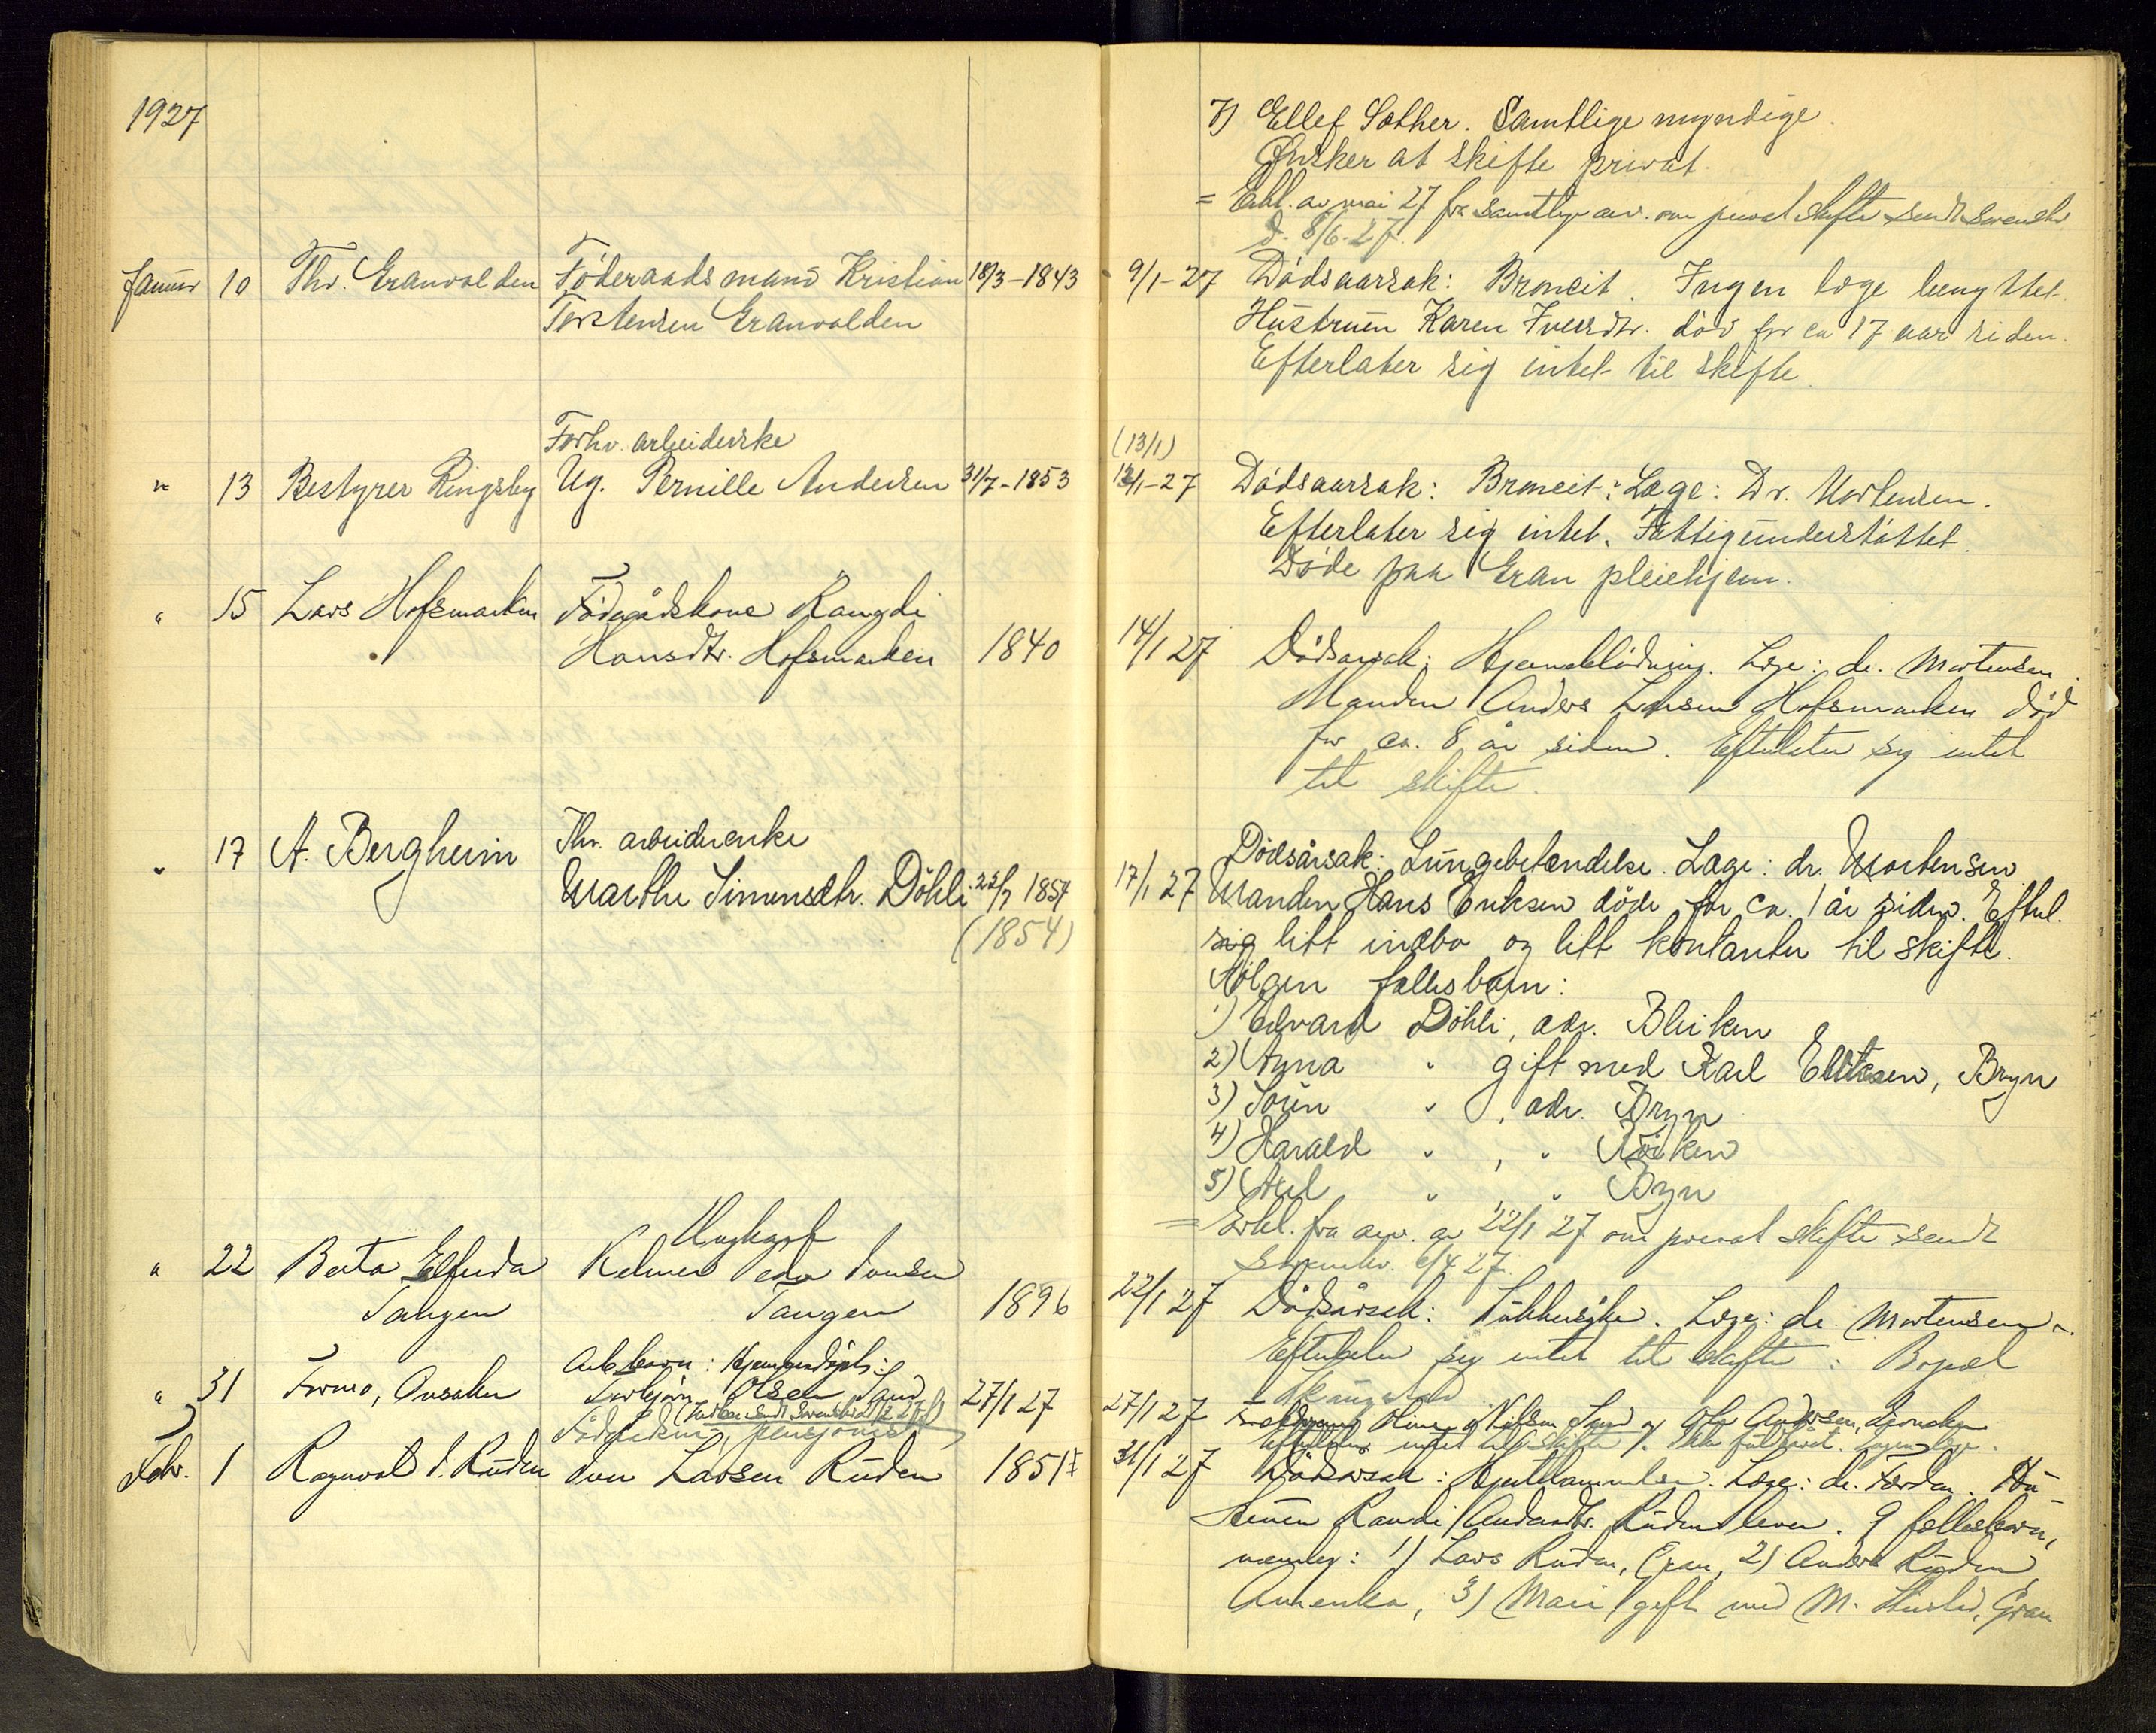 1927
7) Ellef Sother. Samtlige myndige.
Ønsker at skifte privat.
= Erkl. av mai 27 fra samtlige arv. om privat skifte sendt
d. 8/6-27.
Januar 10 Thv. Granvolden Föderaadsmand Kristian 18/3-1843 9/1-27 Dödsaarsak: Broncit. Ingen læge benyttet.
Torstensen Granvolden Hustruen Karen Iversdtr. död for ca 17 aar siden.
Efterlater sig intet til skifte.
Forhv. arbeiderske (13/1)
" 13 Bestyrer Ringsby Ug. Pernille Andersen 31/7-1853 12/1-27 Dödsaarsak: Broncit: Læge: Dr. Mortensen.
Efterlater sig intet. Fattigunderstöttet.
Döde paa Gran pleiehjem.
" 15 Lars Hofsmarken Föderådskone Rangdi
Hansdtr. Hofsmarken 1840 14/1 27 Dödsårsak: Hjerneblödning. Læge: dr. Mortensen.
Manden Anders Larsen Hofsmarken död
for ca. 8 år siden. Efterlater sig intet
til skifte.
" 17 A. Bergheim Fhv. arbeiderenke Dödsårsak: Lungebetændelse. Læge: dr. Mortensen
Marthe Simensdtr. Döhli 22/7 1854 17/1 27 Manden Hans Eriksen döde for ca. 1 år siden. Efterl.
(1854) sig litt indbo og litt kontanter til skifte.
Fölgen fellesbarn:
1) Edvard Döhli, adr. Bleiken
2) Anna " gift med Karl Ellefsen, Bryn
3) Sörin " , adr. Bryn
4) Harald " , " Röiken
5) Axel " " Bryn
= Erkl. fra arv. av 22/1 27 om privat skifte sendt
6/4 27.
Ungkarl
" 22 Berta Elfrida Kelner
Tangen Tangen 1896 22/1 27 Dödsårsak: Sukkersyke. Læge: dr. Mortensen.
Efterlater sig intet til skifte: Bopæl
" 31 Formo, Torbjörn Olsen Sand 27/1 27 27/1 27
intet til skifte
Febr. 1 Ragnvald I. Ruden Iver Larsen Ruden 1851 31/1 27 Dödsårsak: Hjertelammelse. Læge: dr. Hu-
struen Randi Andersdtr. Ruden lever. 9 fellesbarn,
nemlig: 1) Lars Ruden, Gran, 2) Anders Ruden
Amerika, 3) Mari gift med M. Gran